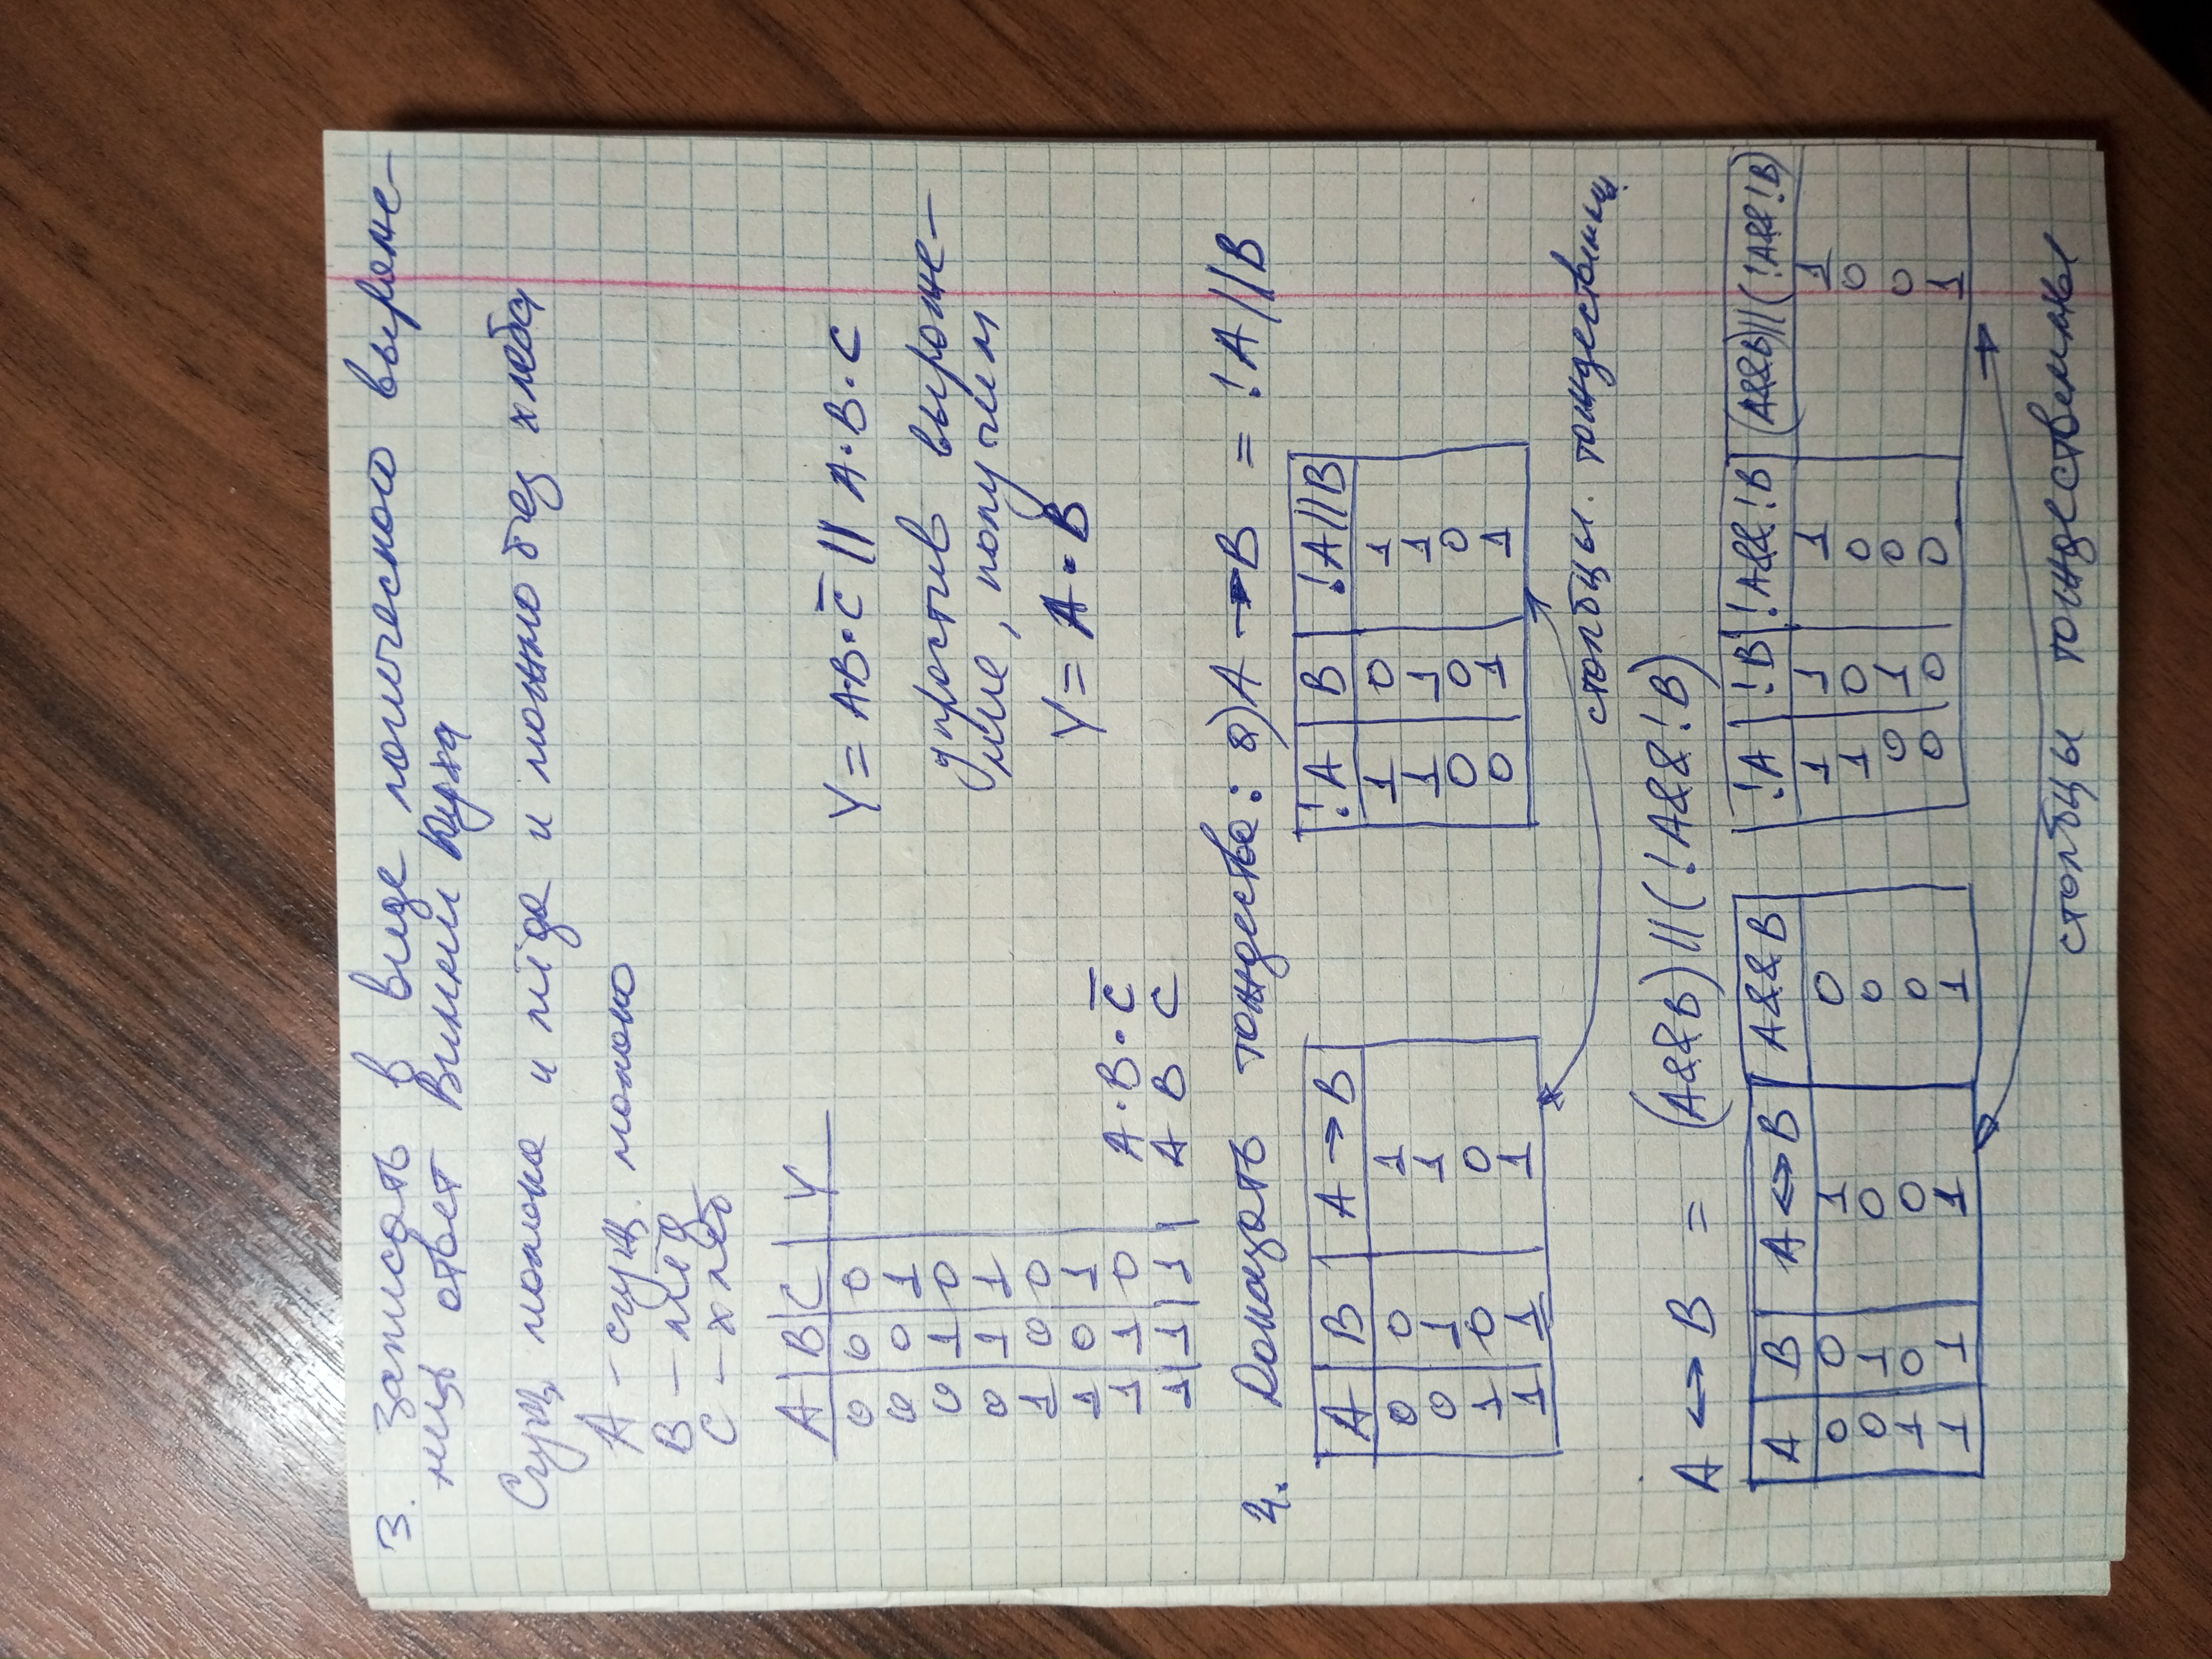 3. Записать в виде логического выраже-
ния ответ Винни Пуха
Сгущ. молока и мёда и можно без хлеба
A - сгущ. молоко
B - мёд
C - хлеб
A B C Y
0 0 0
0 0 1
0 1 0
0 1 1
1 0 0
1 0 1
1 1 0 A·B·C̅
1 1 1 A B C
Y = A·B·C̅ || A·B·C
упростив выраже-
ние, получим
Y = A·B
4. Доказать тождество: а) A → B = !A||B
A B A → B
0 0 1
0 1 1
1 0 0
1 1 1
!A B !A||B
1 0 1
1 1 1
0 0 0
0 1 1
столбцы тождественны
A ↔ B = (A&&B)||(!A&&!B)
A B A ↔ B A&&B
0 0 1 0
0 1 0 0
1 0 0 0
1 1 1 1
!A !B !A&&!B (A&&B)||(!A&&!B)
1 1 1 1
1 0 0 0
0 1 0 0
0 0 0 1
столбцы тождественны